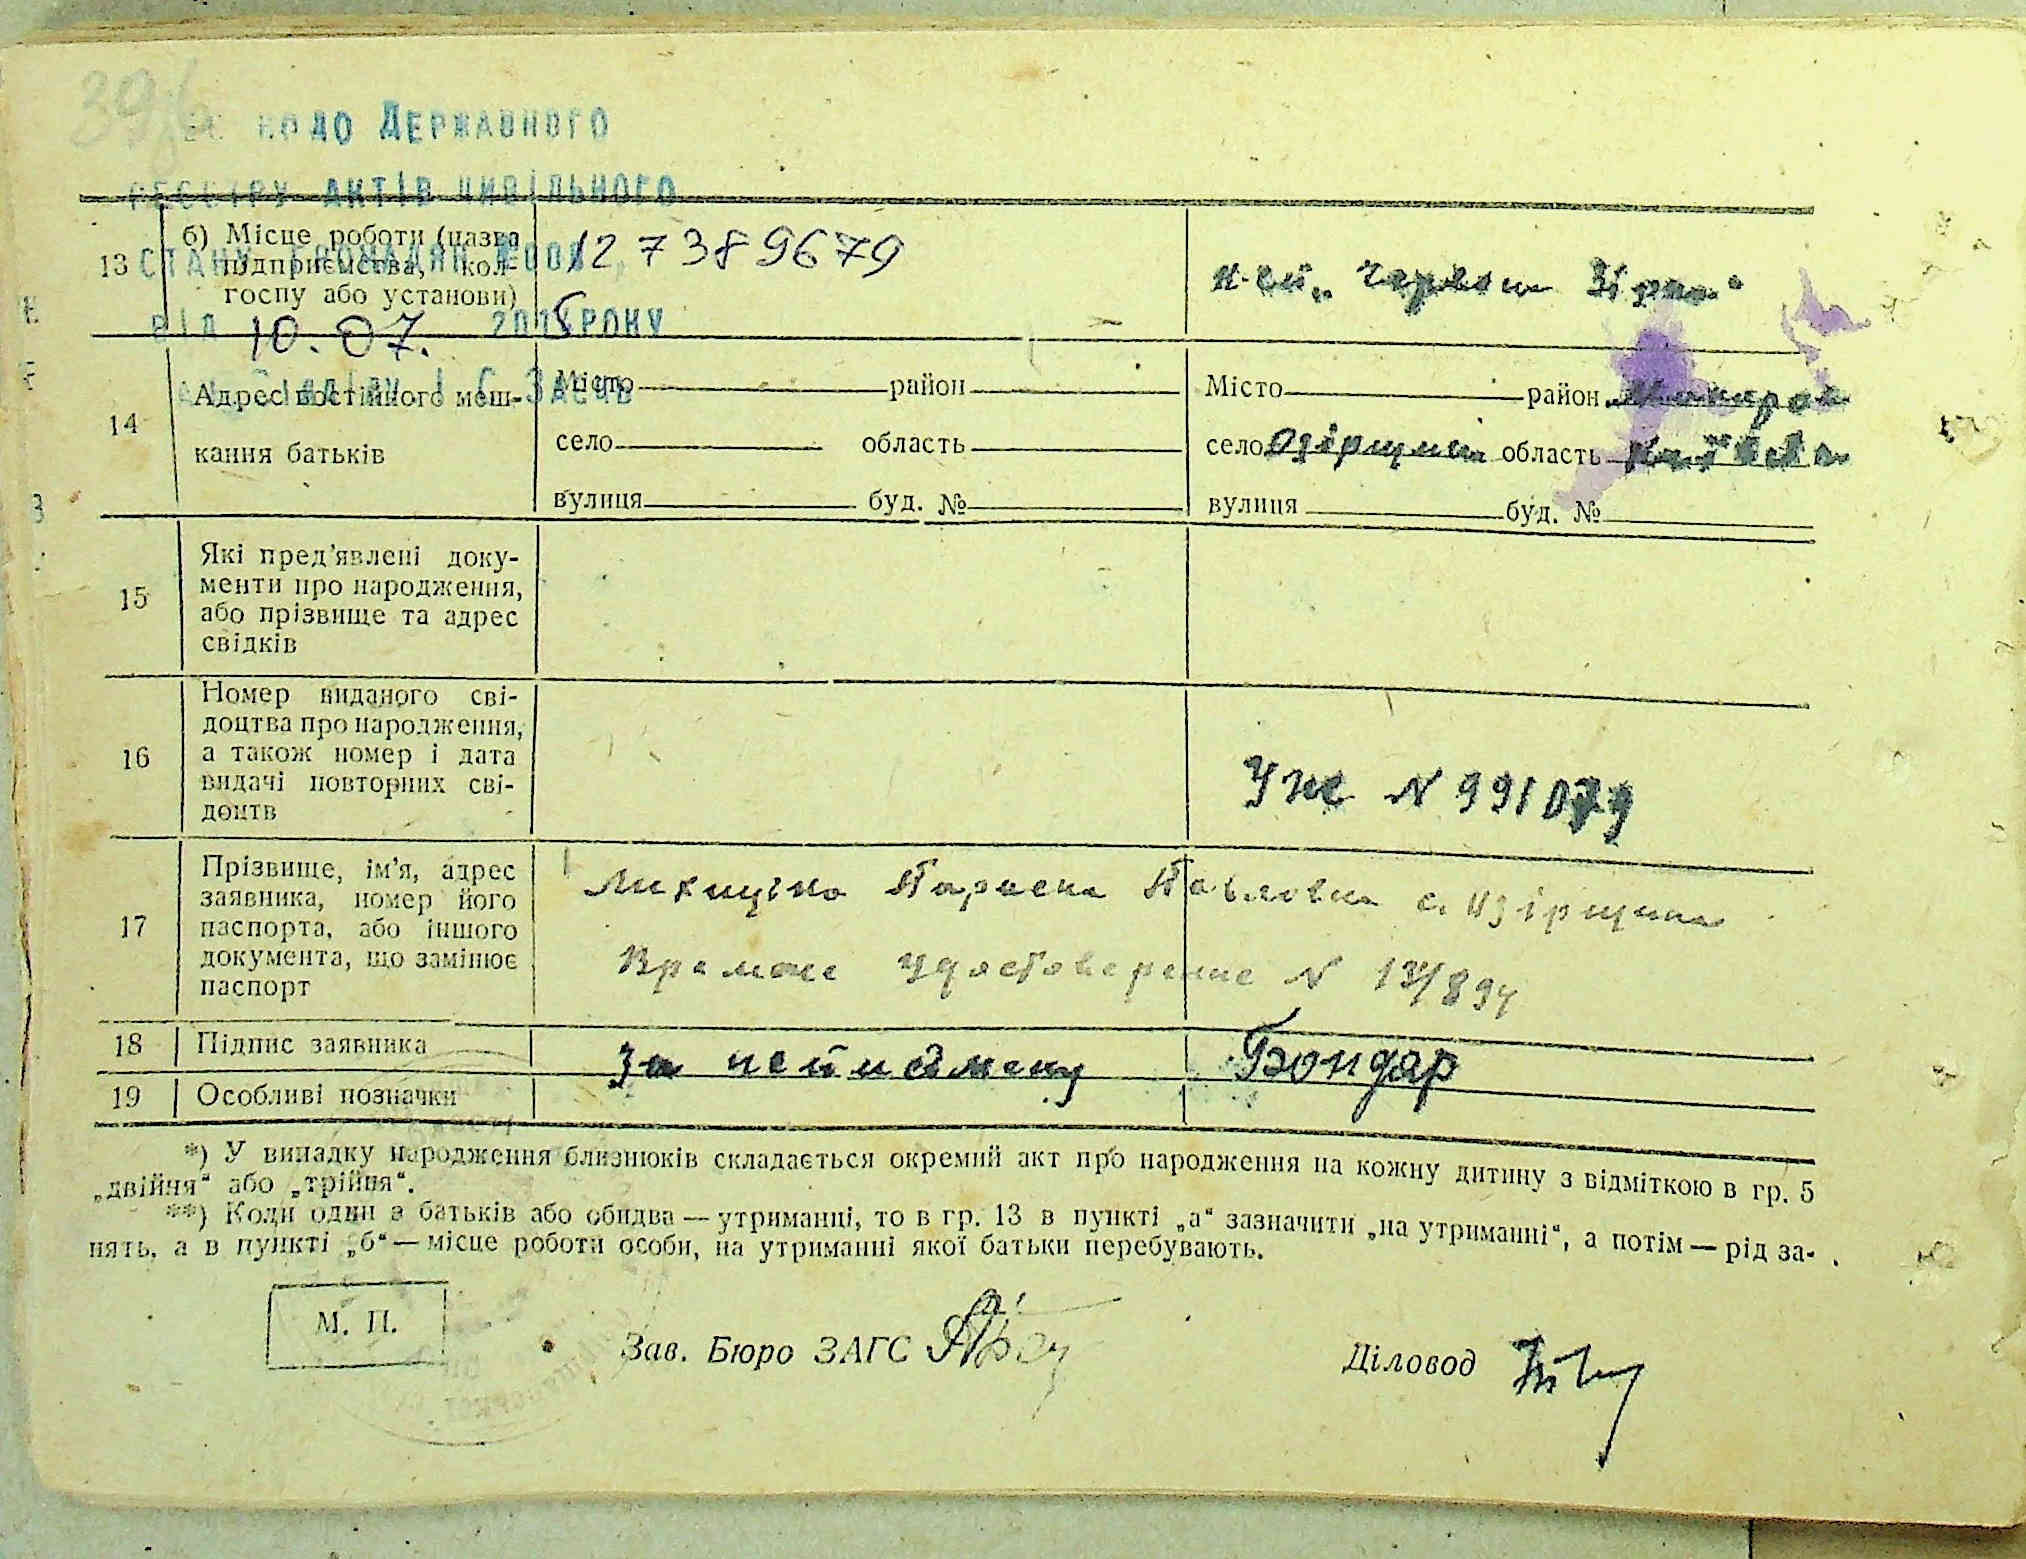 Державного
реєстру актів цивільного
стану громадян
127389679
від 10.07. року
13 б) Місце роботи (назва
підприємства, кол-
госпу або установи)
14 Адрес постійного меш-
кання батьків
Місто район
село область
вулиця буд. №
Місто район
село Озірщина область Київська
вулиця буд. №
15 Які пред'явлені доку-
менти про народження,
або прізвище та адрес
свідків
16 Номер виданого сві-
доцтва про народження,
а також номер і дата
видачі повторних сві-
доцтв
N 991079
17 Прізвище, ім'я, адрес
заявника, номер його
паспорта, або іншого
документа, що замінює
паспорт
Павловна с. Озірщина
удостоверение N
18 Підпис заявника
За Бондар
19 Особливі позначки
*) У випадку народження близнюків складається окремий акт про народження на кожну дитину з відміткою в гр. 5
„двійня“ або „трійня“.
**) Коли один з батьків або обидва — утриманці, то в гр. 13 в пункті „а“ зазначити „на утриманні“, а потім — рід за-
нять, а в пункті „б“ — місце роботи особи, на утриманні якої батьки перебувають.
М. П.
Зав. Бюро ЗАГС
Діловод